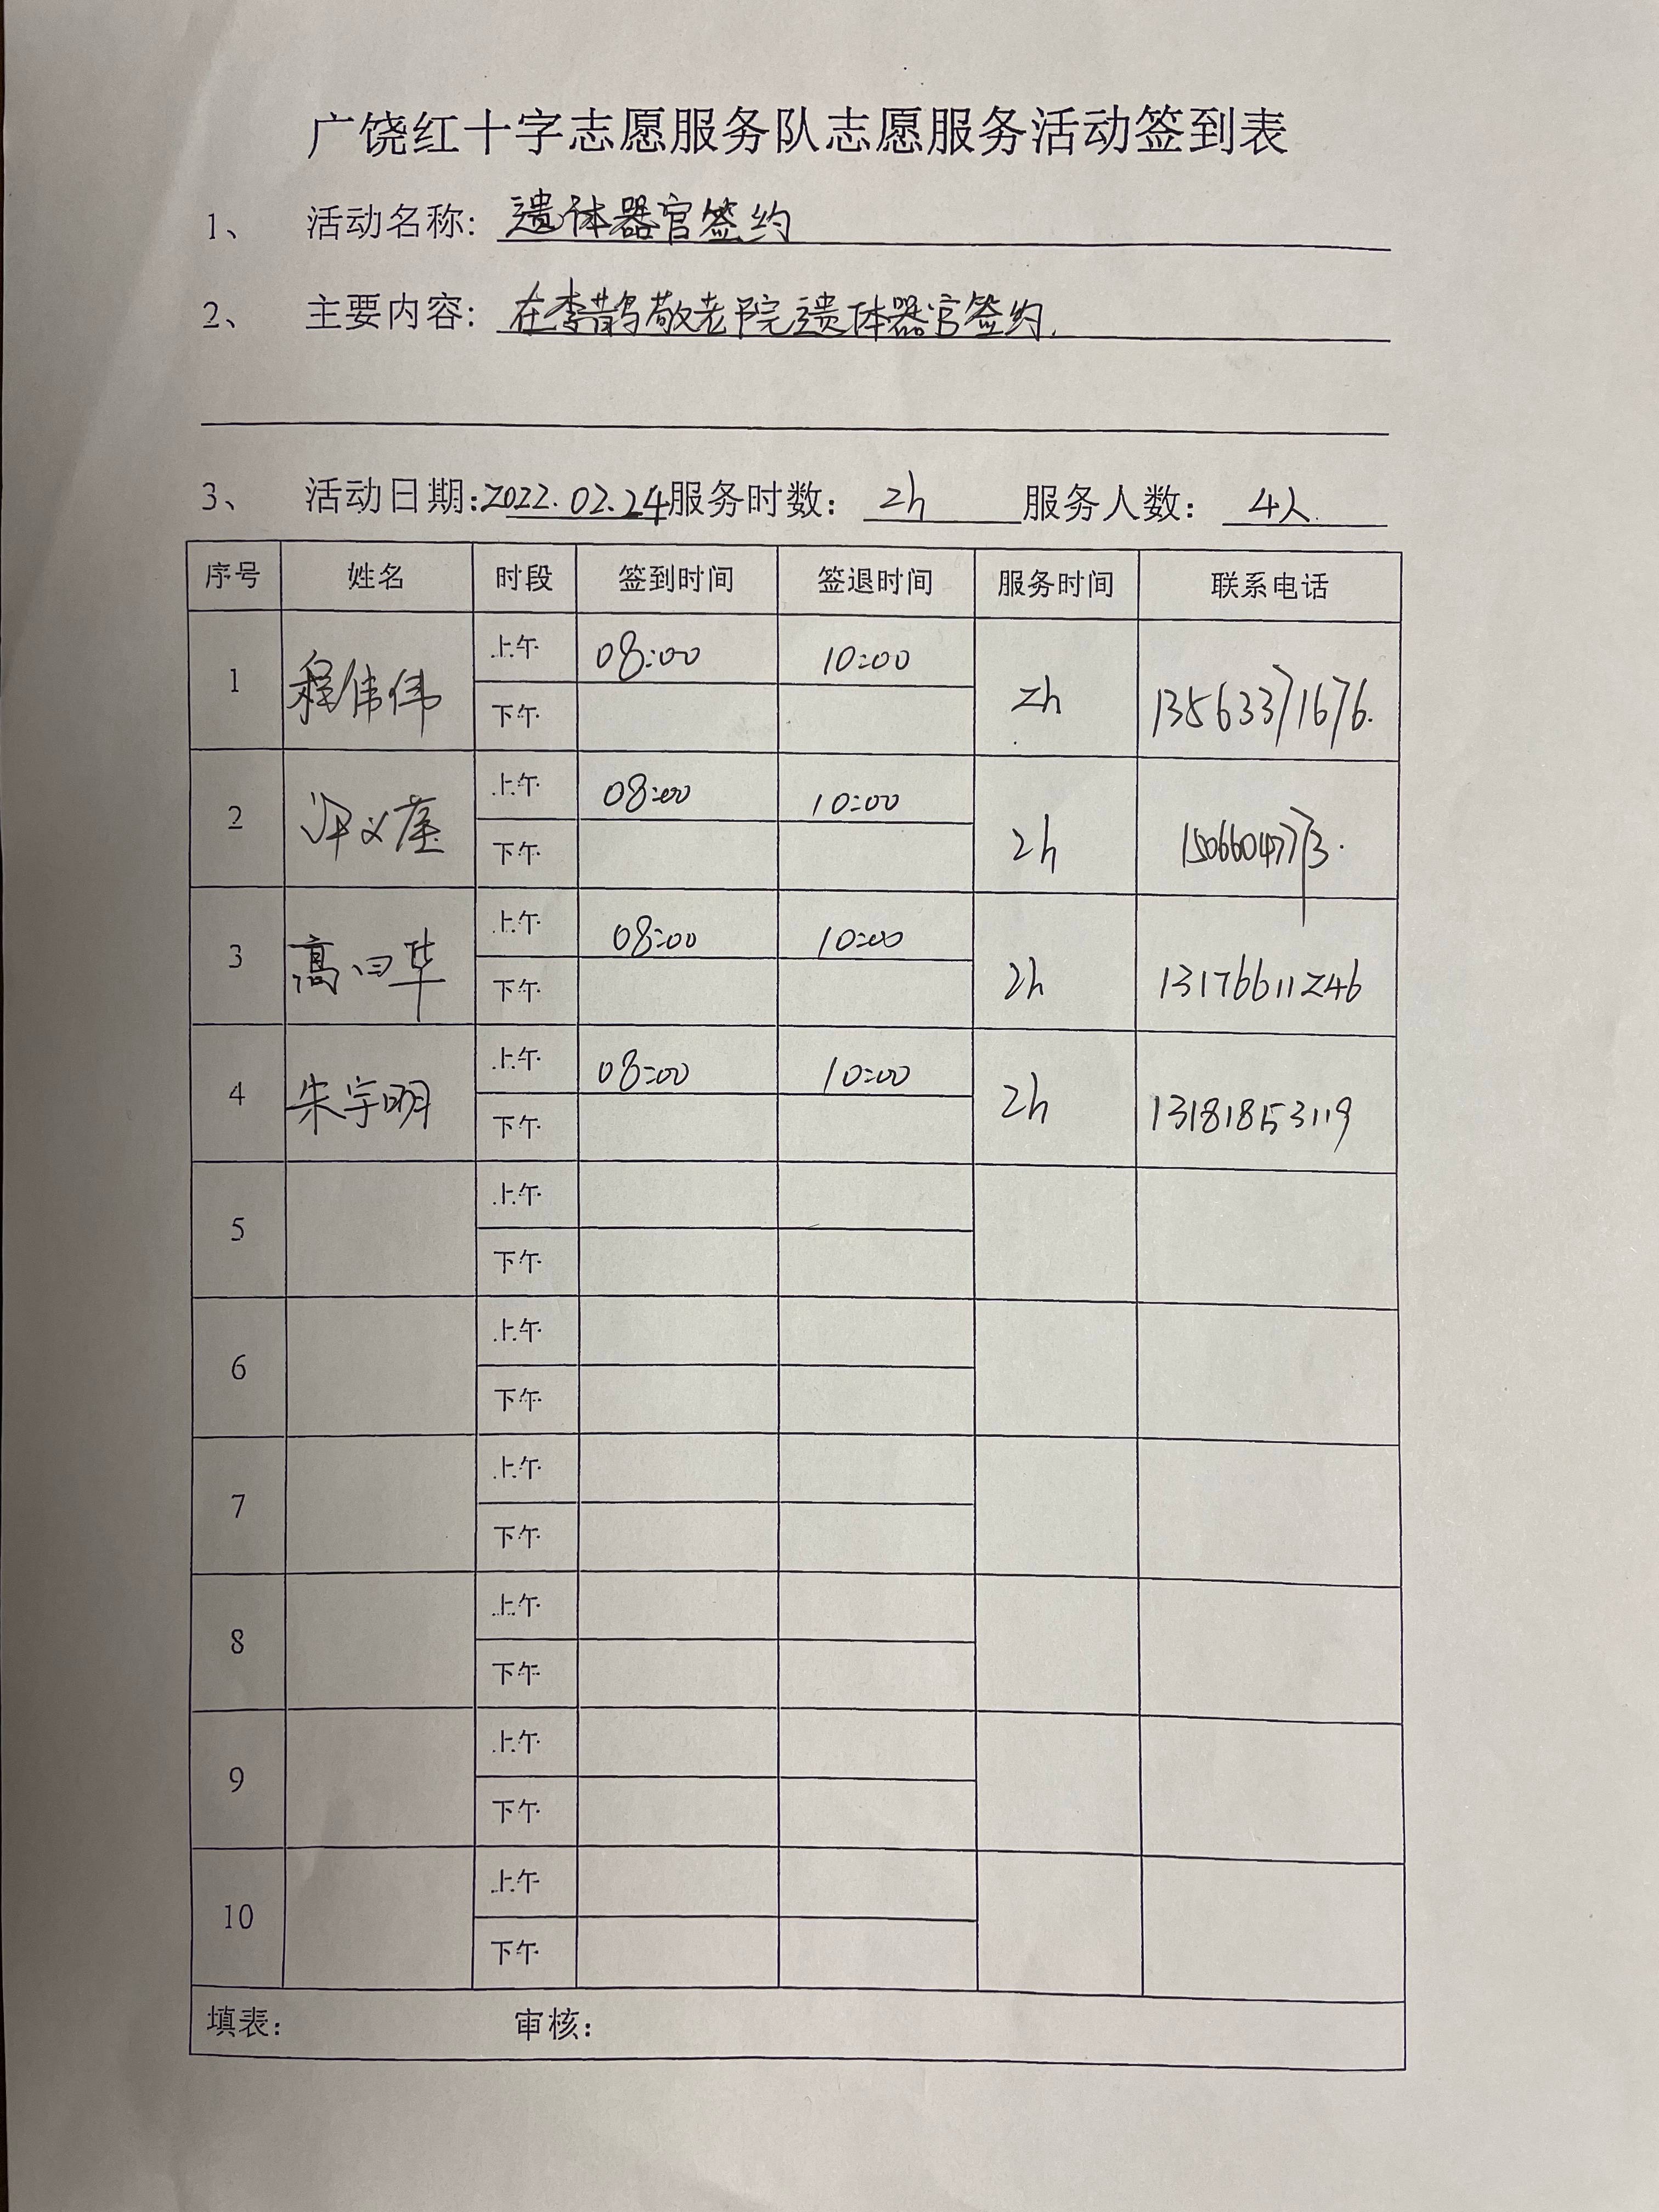 广饶红十字志愿服务队志愿服务活动签到表
1、 活动名称: 遗体器官签约
2、 主要内容: 在李鹊敬老院遗体器官签约.
3、 活动日期:2022.02.24服务时数: 2h 服务人数: 4人.
序号 姓名 时段 签到时间 签退时间 服务时间 联系电话
1 程伟伟 上午 08:00 10:00 2h 13563371676.
下午
2 上午 08:00 10:00 2h
下午
3 高曰华 上午 08:00 10:00 2h 13176611246
下午
4 朱宇明 上午 08:00 10:00 2h 13181853119
下午
5 上午
下午
6 上午
下午
7 上午
下午
8 上午
下午
9 上午
下午
10 上午
下午
填表: 审核: